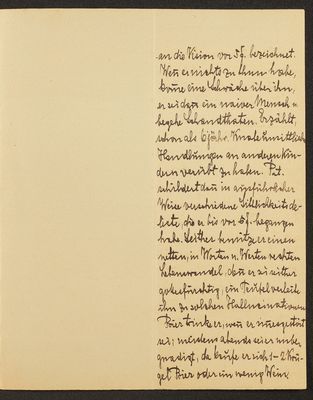 an die Vision vor 5 J. bezeichnet.
Wenn er nichts zu thun habe,
käme eine Schwäche über ihn,
er sei dann ein naiver Mensch u.
begehe Schandthaten. Erzählt,
schon als 6jähr. Knabe unsittliche
Handlungen an anderen Kin-
dern verübt zu haben. Pat.
schildert dann in ausführlicher
Weise verschiedene Sittlichkeitsde-
likte, die er bis vor 5 J. begangen
habe. Seither benütze er einen
netten, in Worten u. Werken rechten
Lebenswandel, denn er sei seither
gottesfürchtig; ein Teufel verleite
ihn zu solchen Hallucinationen.
Bier trinke er, wenn er
sei; meistens abends sei er
, da kaufe er sich 1-2 Krü-
gel Bier oder ein wenig Wein.